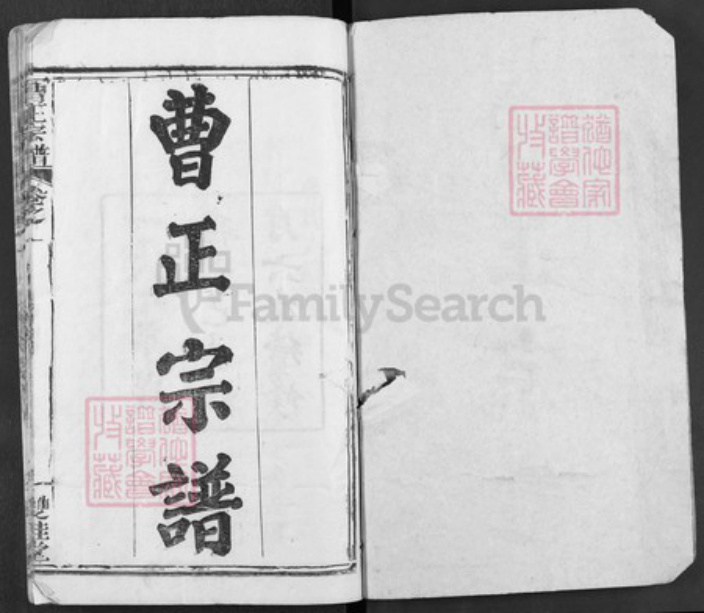 猶他家
譜學會
收藏
曹正宗譜
曹正宗譜
雙桂堂
猶他家
譜學會
收藏
FamilySearch